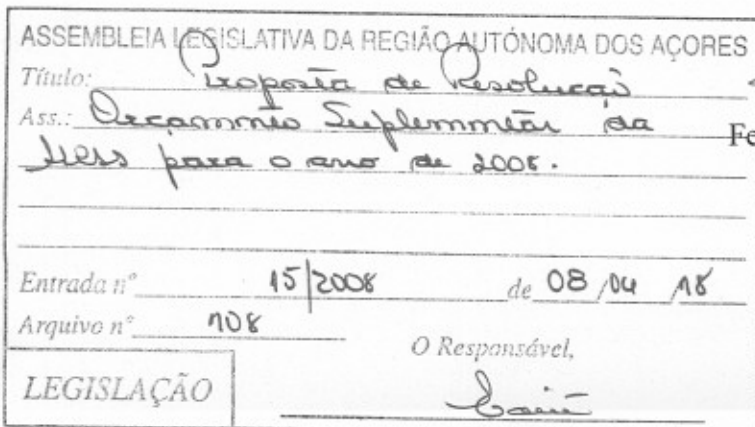 ASSEMBLEIA LEGISLATIVA DA REGIÃO AUTÓNOMA DOS AÇORES
Título: Proposta de Resolução
Ass.: Orçamento Suplementar da Fe
para o ano de 2008.
Entrada nº 15/2008 de 08/04/18
Arquivo nº 108
O Responsável,
LEGISLAÇÃO